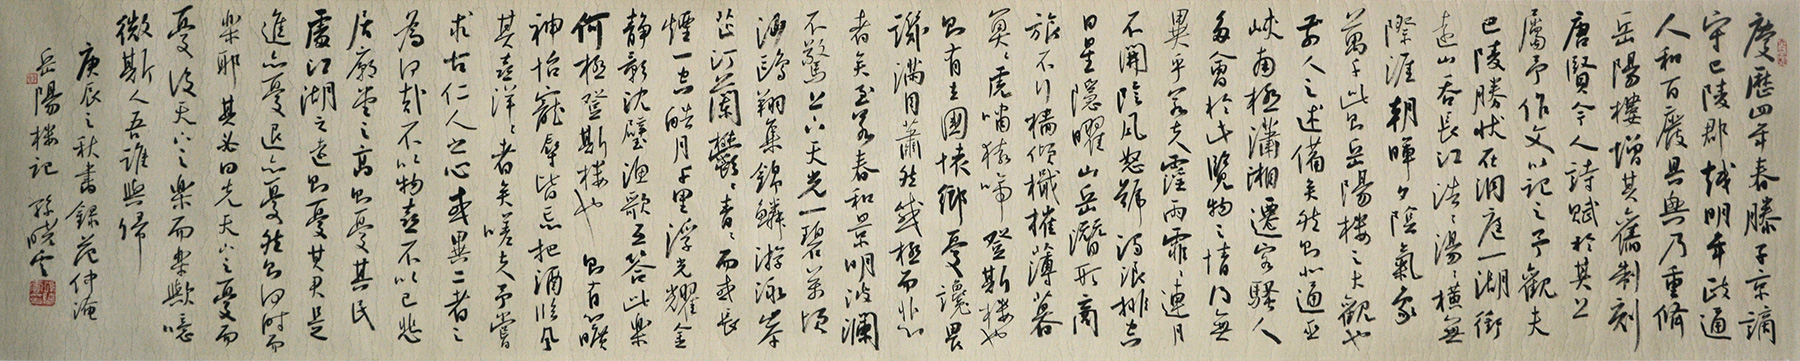 慶曆四年春滕子京謫
守巴陵郡越明年政通
人和百廢具興乃重脩
岳陽樓增其舊制刻
唐賢今人詩賦於其上
屬予作文以記之予觀夫
巴陵勝狀在洞庭一湖銜
遠山吞長江浩々湯々橫無
際涯朝暉夕陰氣象
萬千此則岳陽樓之大觀也
前人之述備矣然則北通巫
峽南極瀟湘遷客騷人
多會於此覽物之情得無
異乎若夫霪雨霏々連月
不開陰風怒號濁浪排空
日星隱曜山岳潛形商
旅不行檣傾檝摧薄暮
冥々虎嘯猿啼登斯樓也
則有去國懷鄉憂讒畏
譏滿目蕭然感極而悲
者矣至若春和景明波瀾
不驚上下天光一碧萬頃
沙鷗翔集錦鱗游泳岸
芷汀蘭鬱々青々而或長
煙一空皓月千里浮光耀金
靜影沈璧漁歌互答此樂
何極登斯樓也則有心曠
神怡寵辱皆忘把酒臨風
其喜洋々者矣嗟夫予嘗
求古仁人之心或異二者之
為何哉不以物喜不以己悲
居廟堂之高則憂其民
處江湖之遠則憂其君是
進亦憂退亦憂然則何時而
樂耶其必曰先天下之憂而
憂後天下之樂而樂歟噫
微斯人吾誰與歸
庚辰之秋書錄范仲淹
岳陽樓記 孫曉雲